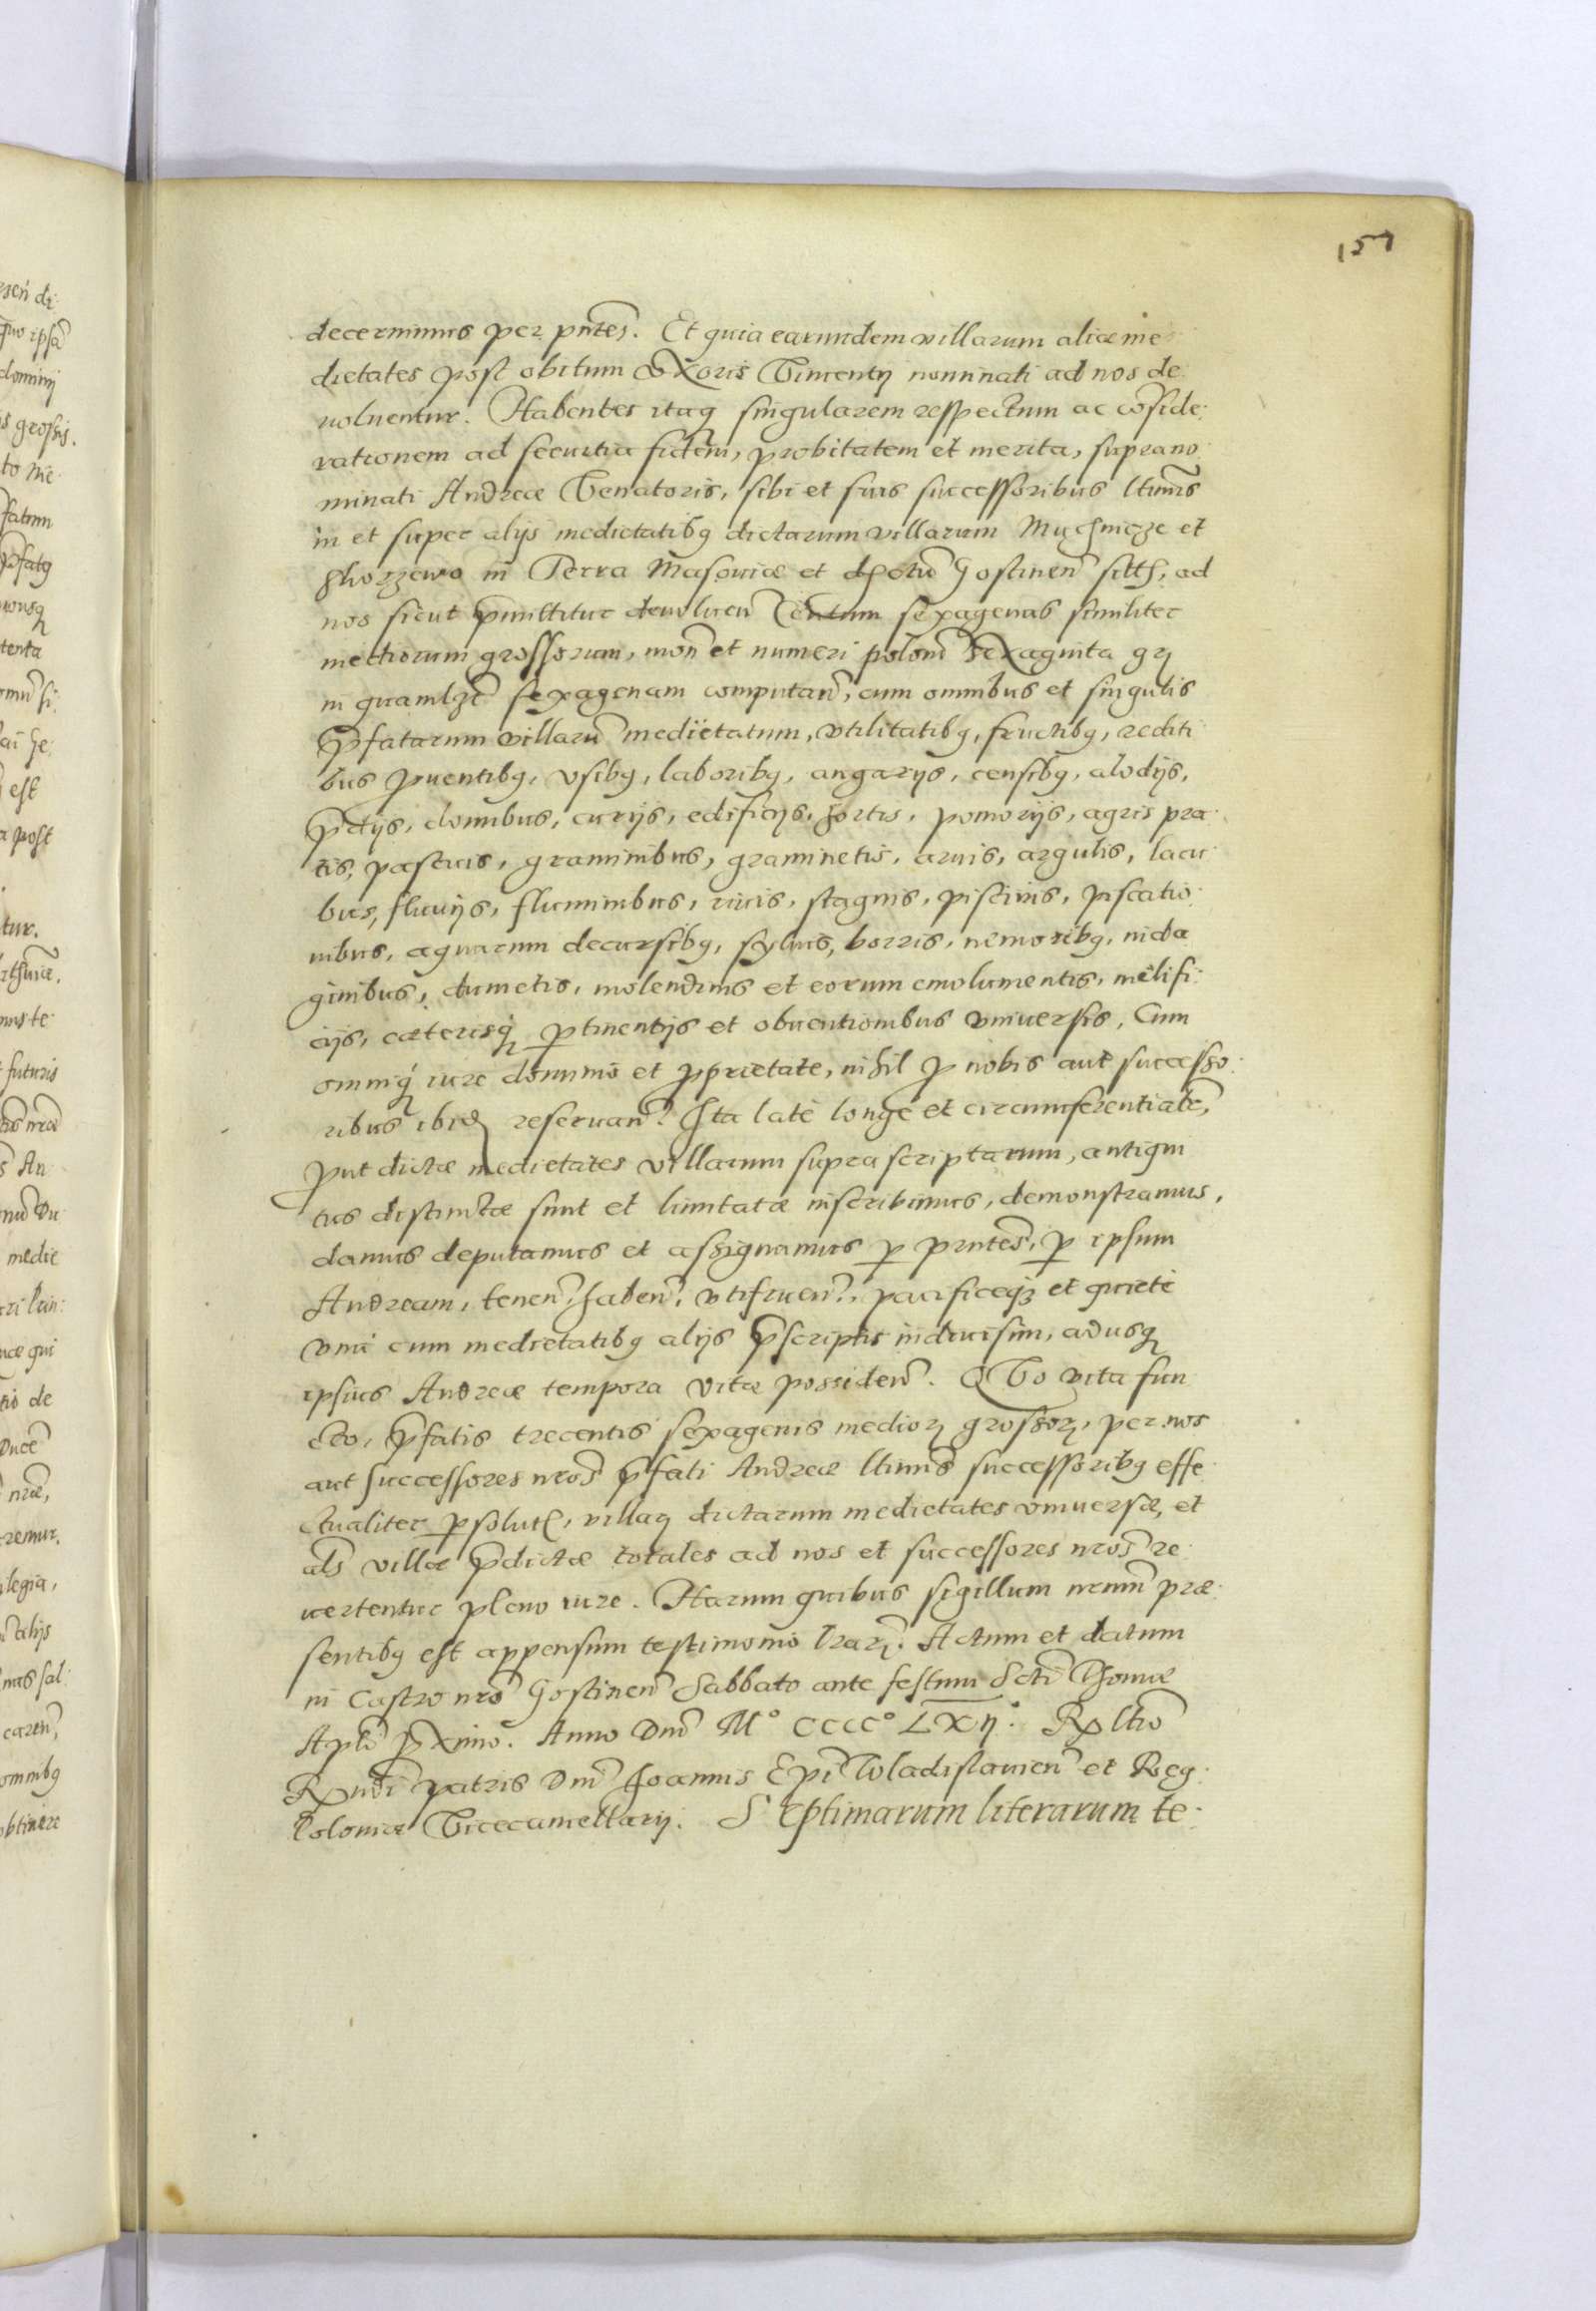 157
decernimus per pntes. Et quia earundem villarum aliæ me
dietates post obitum Vxoris Vincentij nominati ad nos de:
voluentur. Habentes itaq singularem respectum ac coside:
rationem ad seruitia fidem, probitatem et merita, suprano
minati Andreæ Venatoris, sibi et suis successoribus ltimis
in et super alijs medietatibq dictarum villarum et
in Terra Masouiæ et Gostinen ad
nos sicut pmittitur deuoluen Centum sexagenas similiter
mediorum grossorum, mon et numeri polon sexaginta
in sexagenam computan, cum omnibus et singulis
pfatarum villaru medietatum, vtilitatibq, fructibq, rediti
bus puentibq, vsibq, laboribq, angarijs, censibq, alodijs,
pdijs, domibus, curijs, edificijs, hortis, pomorijs, agris pra
tis, pascuis, graminibus, graminetis, aruis, argulis, lacu
bus, fluuijs, fluminibus, riuis, stagnis, piscinis, piscatio
nibus, aquarum decursibq, syluis, borris, nemoribq, inda
ginibus, dumetis, molendinis et eorum emolumentis, melifi:
cijs, cæterisq ptinentijs et obuentionibus vniuersis, Cum
omniq iure dominio et pprietate, nihil p nobis aut successo:
ribus ibid reseruan. Ita latè longè et circumferentialr,
put dictæ medietates villarum supra scriptarum, antiqui
tus distinctæ sunt et limitatæ inscribimus, demonstramus,
damus deputamus et assignamus p pntes, p ipsum
Andream, tenen, haben, vtifruen, pacificeq et quietè
vnà cum medietatibq alijs pscriptis indiuisim, adusq
ipsius Andreæ tempora vitæ possiden. Quo vita fun
cto, pfatis trecentis sexagenis medior grossor, per nos
aut successores nros pfati Andreæ ltimis successoribq effe
ctualiter psolut, villar dictarum medietates vniuersæ, et
als villæ pdictæ totales ad nos et successores nros re
uertentur pleno iure. Harum quibus sigillum nrum præ:
sentibq est appensum testimonio lrar. Actum et datum
in Castro nro Gostinen Sabbato ante festum Scti Thomæ
Apli pximo. Anno Dni M° CCCC° LXII°. Rltio
Rndi patris Dni Joannis Epi Wladislauien et Reg
Poloniæ Vicecancellarij. Septimarum literarum te: